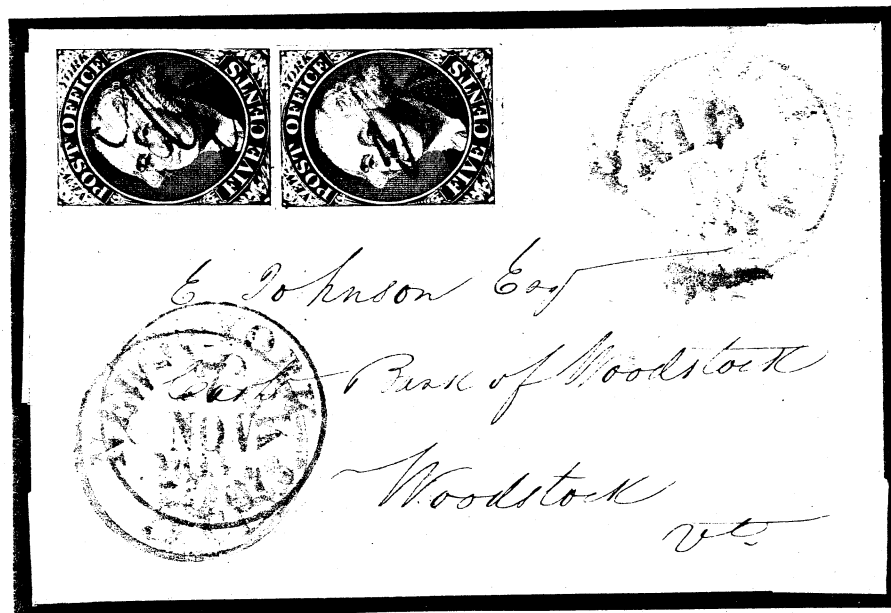 NEW YORK
POST OFFICE
FIVE CENTS
NEW YORK
POST OFFICE
FIVE CENTS
PAID
E Johnson Esq
Cash Bank of Woodstock
Woodstock
Vt
NEW-YORK
NOV